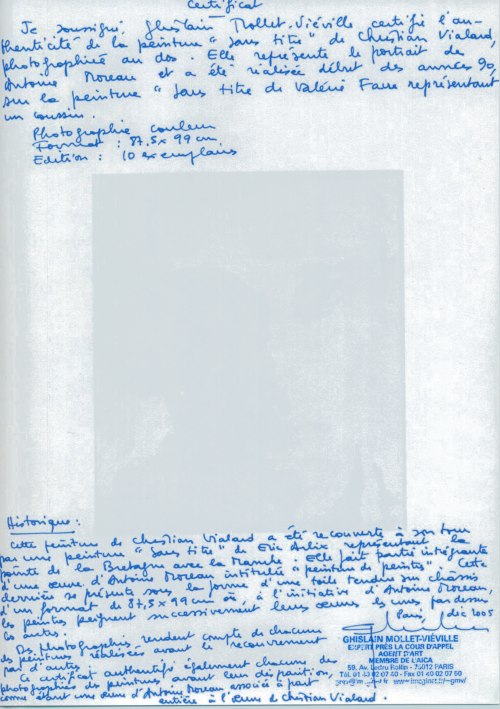 Certificat
Je soussigné, Ghislain Mollet-Viéville certifie l'au-
thenticité de la peinture "sans titre" de Christian Vialard,
photographiée au dos. Elle représente le portrait de
Antoine Moreau et a été réalisée début des années 90,
sur la peinture "sans titre de Valérie Faure représentant
un coussin.
Photographie couleur
Format : 87,5 x 99 cm
Edition : 10 exemplaires
Historique :
Cette peinture de Christian Vialard a été recouverte à son tour
par une peinture "sans titre" de Eric Arlix représentant la
pointe de la Bretagne avec la Manche. Elle fait partie intégrante
d'une œuvre d'Antoine Moreau intitulée "peinture de peintres". Cette
dernière se présente sous la forme d'une toile tendue sur châssis
d'un format de 87,5 x 99 cm où, à l'initiative d'Antoine Moreau,
les peintres peignent successivement leurs œuvres les unes par dessus
les autres.
Paris, déc 2005
Des photographies rendent compte de chacune
des peintures réalisées avant le recouvrement
par d'autres.
Ce certificat authentifie également chacune des
photographies des peintures avant leur disparition,
comme étant une œuvre d'Antoine Moreau associée à part
entière à l'œuvre de Christian Vialard.
GHISLAIN MOLLET-VIÉVILLE
EXPERT PRÈS LA COUR D'APPEL
AGENT D'ART
MEMBRE DE L'AICA
59, Av. Ledru Rollin - 75012 PARIS
Tél. 01 43 02 07 40 - Fax 01 40 02 07 50